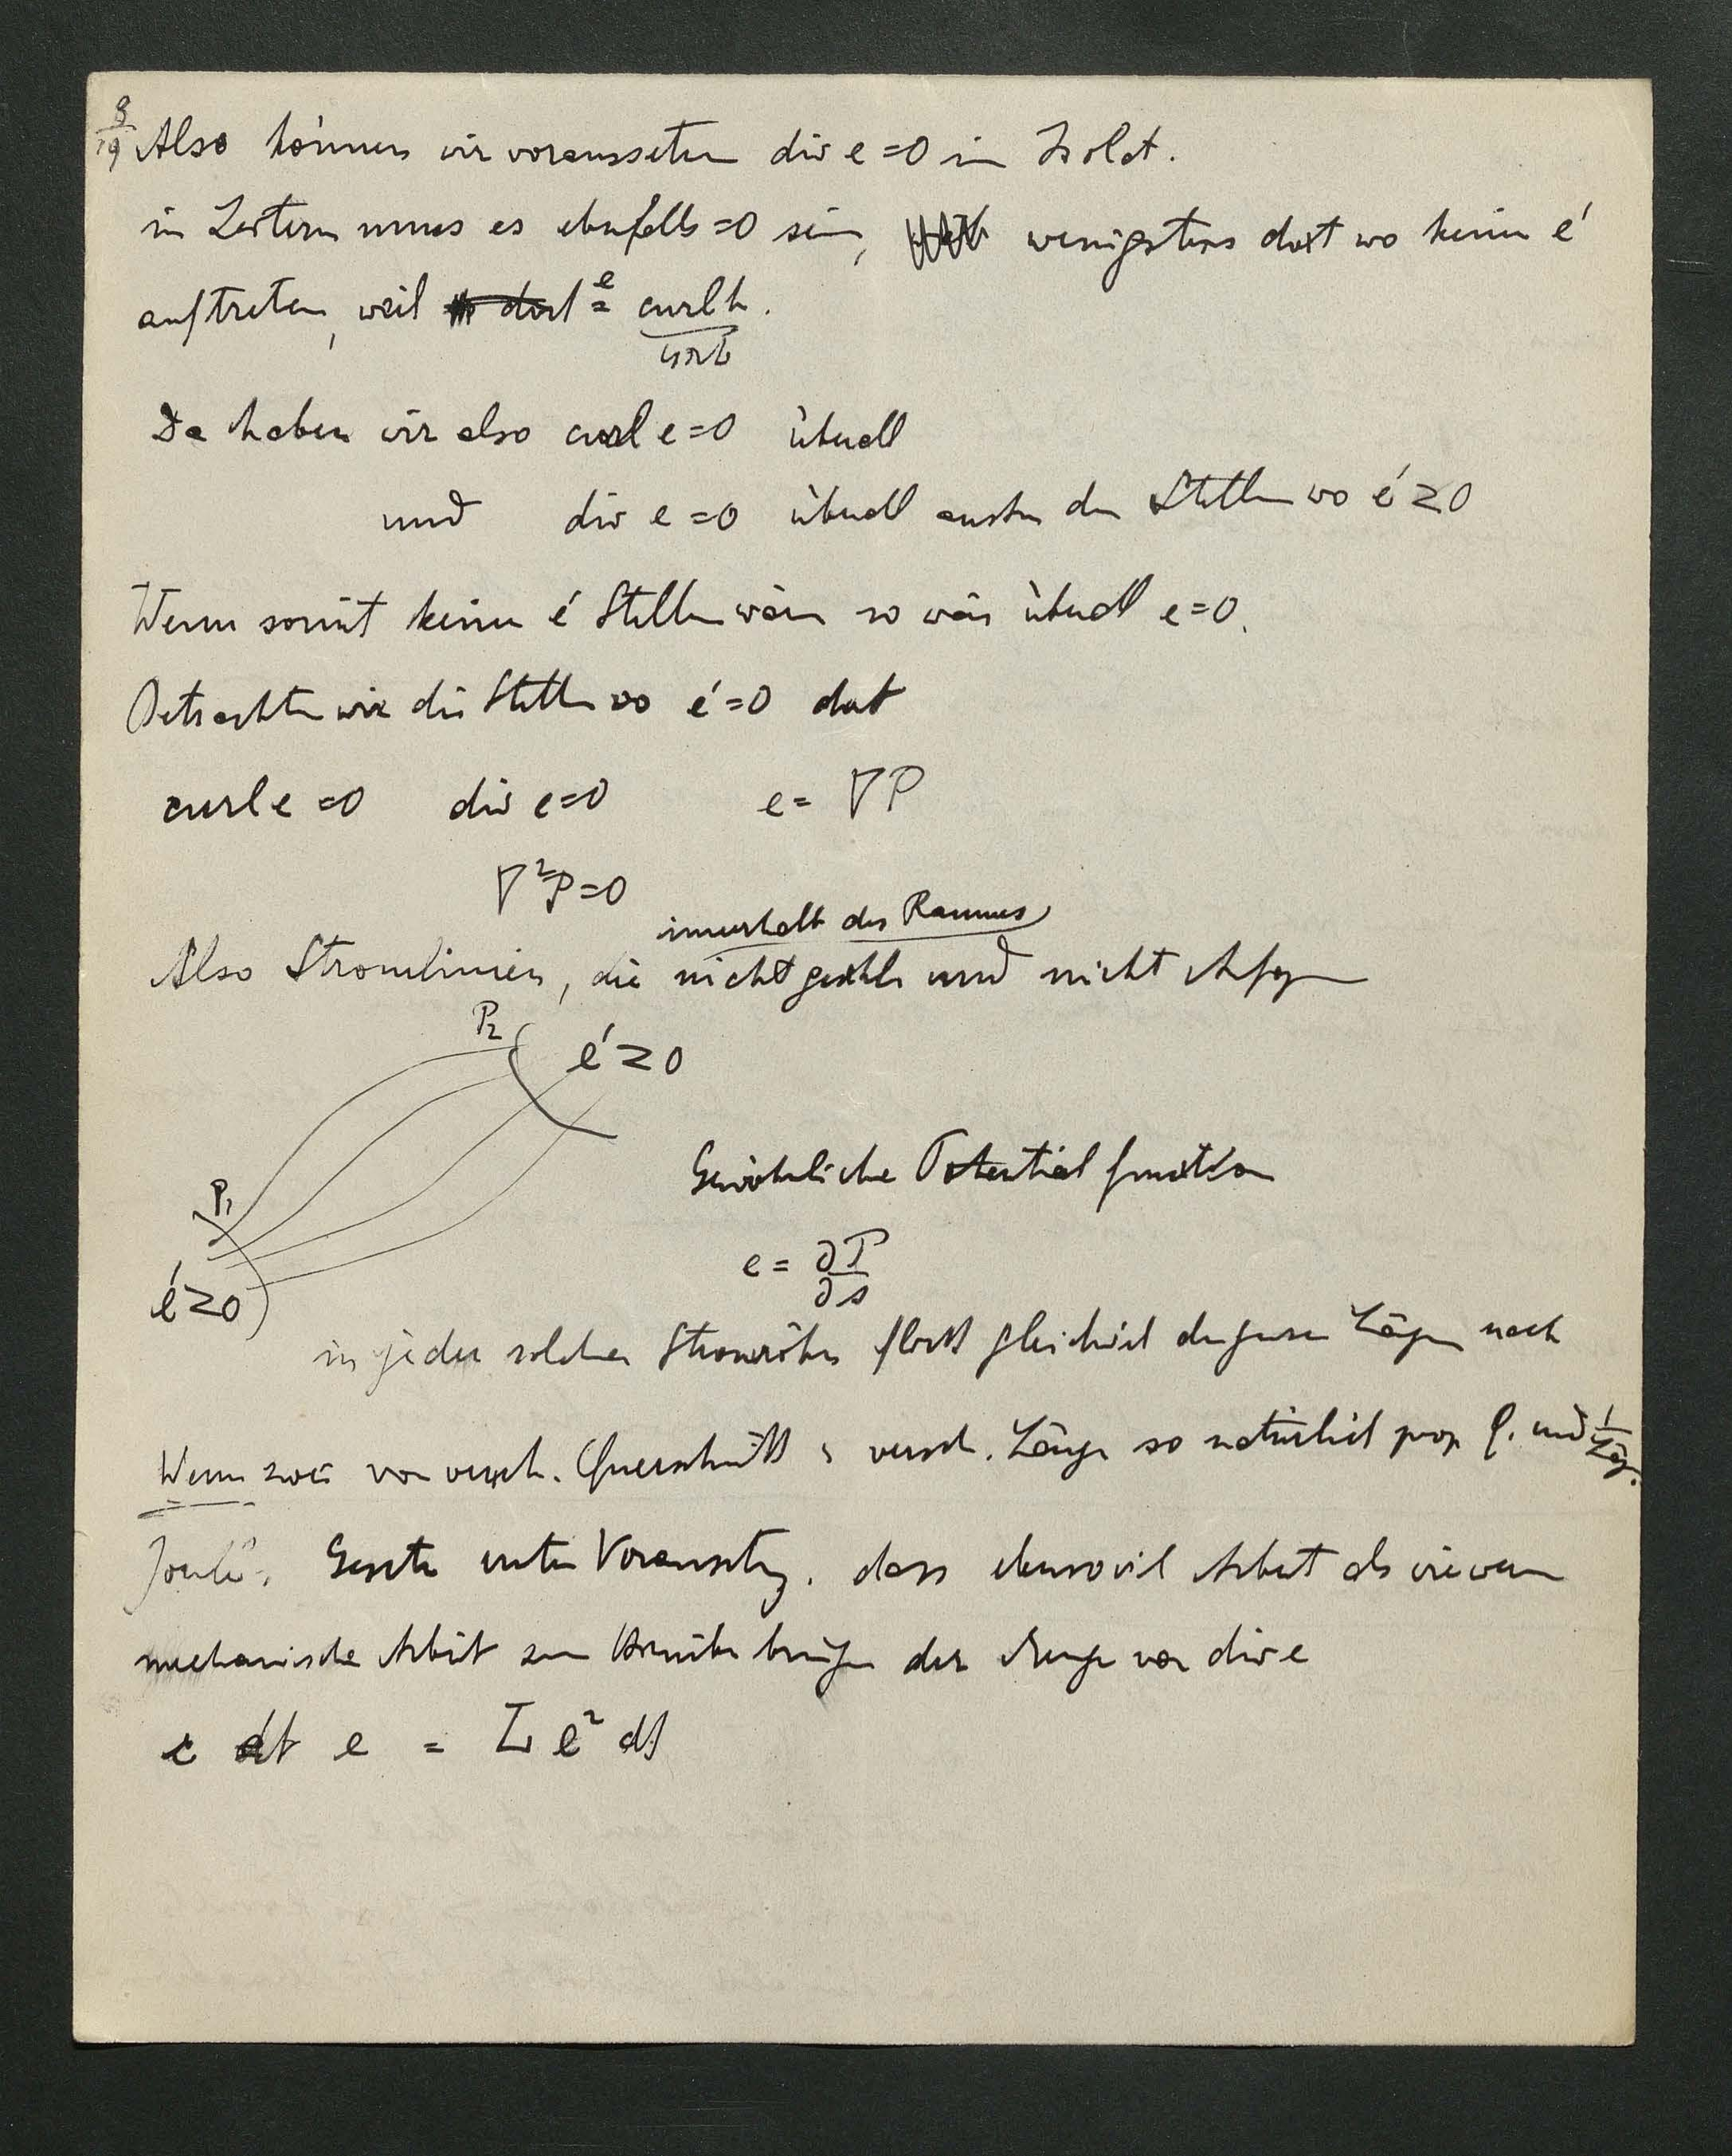 8/19
Also können wir voraussetzen div e = 0 in Isolat.
in Leitern muss es ebenfalls = 0 sein, wenigstens dort wo keine é
auftreten, weil e = curl h.
Da haben wir also curl e = 0 überall
und div e = 0 überall ausser den Stellen wo é ≥ 0
Wenn somit keine é Stellen wären so wäre überall e = 0.
Betrachten wir die Stellen wo é = 0 dort
curl e = 0 div e = 0 e = ∇P
∇²P = 0
innerhalb des Raumes
Also Stromlinien, die nicht und nicht
P₂ é ≥ 0
Gewöhnliche Potentialfunction
P₁
e = ∂P/∂s
é ≥ 0
in jeder solchen Stromröhre fliesst gleichviel der ganzen Länge nach
Wenn zwei von versch. Querschnitt & versch. Länge so natürlich prop Q. und 1/Läng.
Joule's Gesetz unter Voraussetzg. dass ebensoviel Arbeit als wie wenn
mechanische Arbeit zum der Menge von div e
e dt e = Σ e² dt